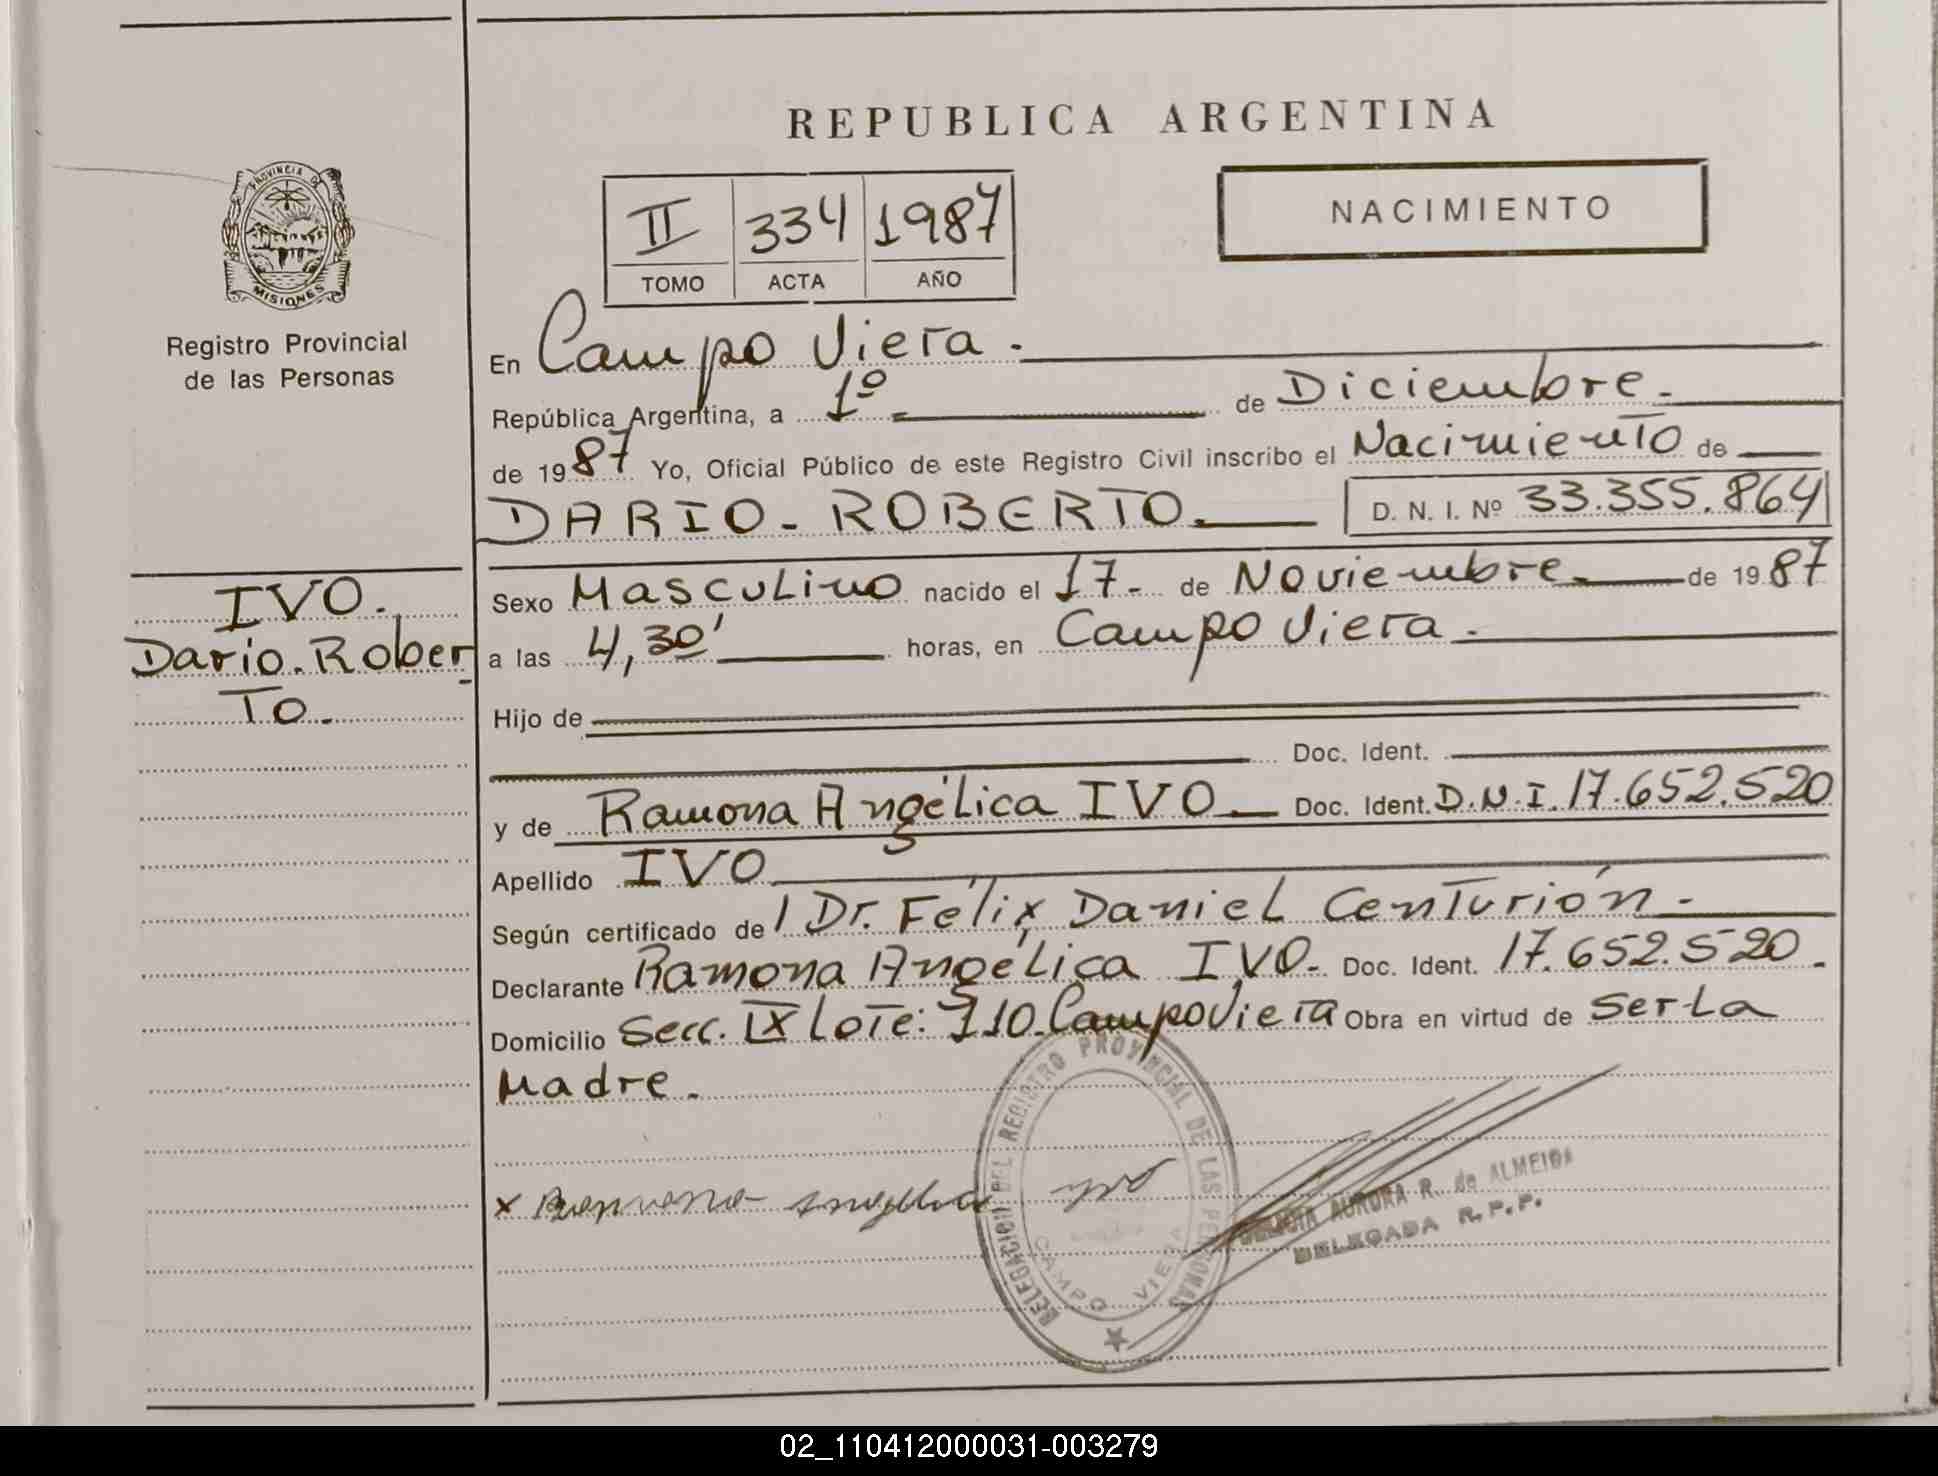 REPUBLICA ARGENTINA
PROVINCIA DE
MISIONES
Registro Provincial
de las Personas
II 334 1987
TOMO ACTA AÑO
NACIMIENTO
En Campo Viera.
República Argentina, a 1º de Diciembre.
de 1987 Yo, Oficial Público de este Registro Civil inscribo el Nacimiento de
DARIO. ROBERTO. D. N. I. Nº 33.355.864
IVO.
Dario. Rober
To.
Sexo Masculino nacido el 17- de Noviembre de 1987
a las 4,30' horas, en Campo Viera.
Hijo de
Doc. Ident.
y de Ramona Angélica IVO Doc. Ident. D.N.I. 17.652.520
Apellido IVO
Según certificado de l Dr. Félix Daniel Centurión.
Declarante Ramona Angélica IVO. Doc. Ident. 17.652.520.
Domicilio Secc. IX Lote: 110. Campo Viera Obra en virtud de Ser La
Madre.
DELEGACION DEL REGISTRO PROVINCIAL DE LAS PERSONAS
CAMPO VIERA
x
AURORA R. de ALMEIDA
DELEGADA R.P.P.
02_110412000031-003279